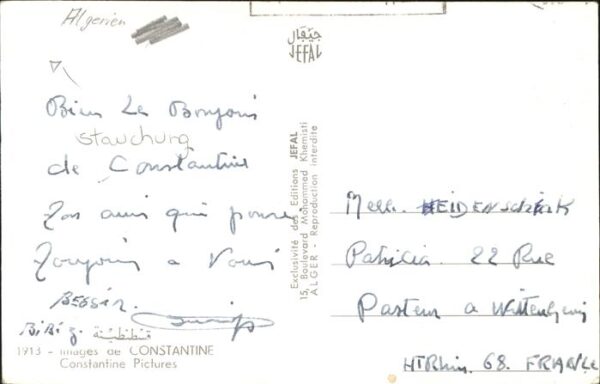 Algerien
جيفال
JEFAL
Bien Le Bonjour
stauchung
de Constantine
Ton ami qui pense
Toujours a Vous
BESSER.
Exclusivité des Editions JEFAL
15, Boulevard Mohammed Khemisti
ALGER - Reproduction interdite
Melle. HEIDENSCHENK
Patricia 22 Rue
Pasteur a Wittenheim
HT Rhin. 68. FRANCE
1913 - Images de CONSTANTINE
Constantine Pictures